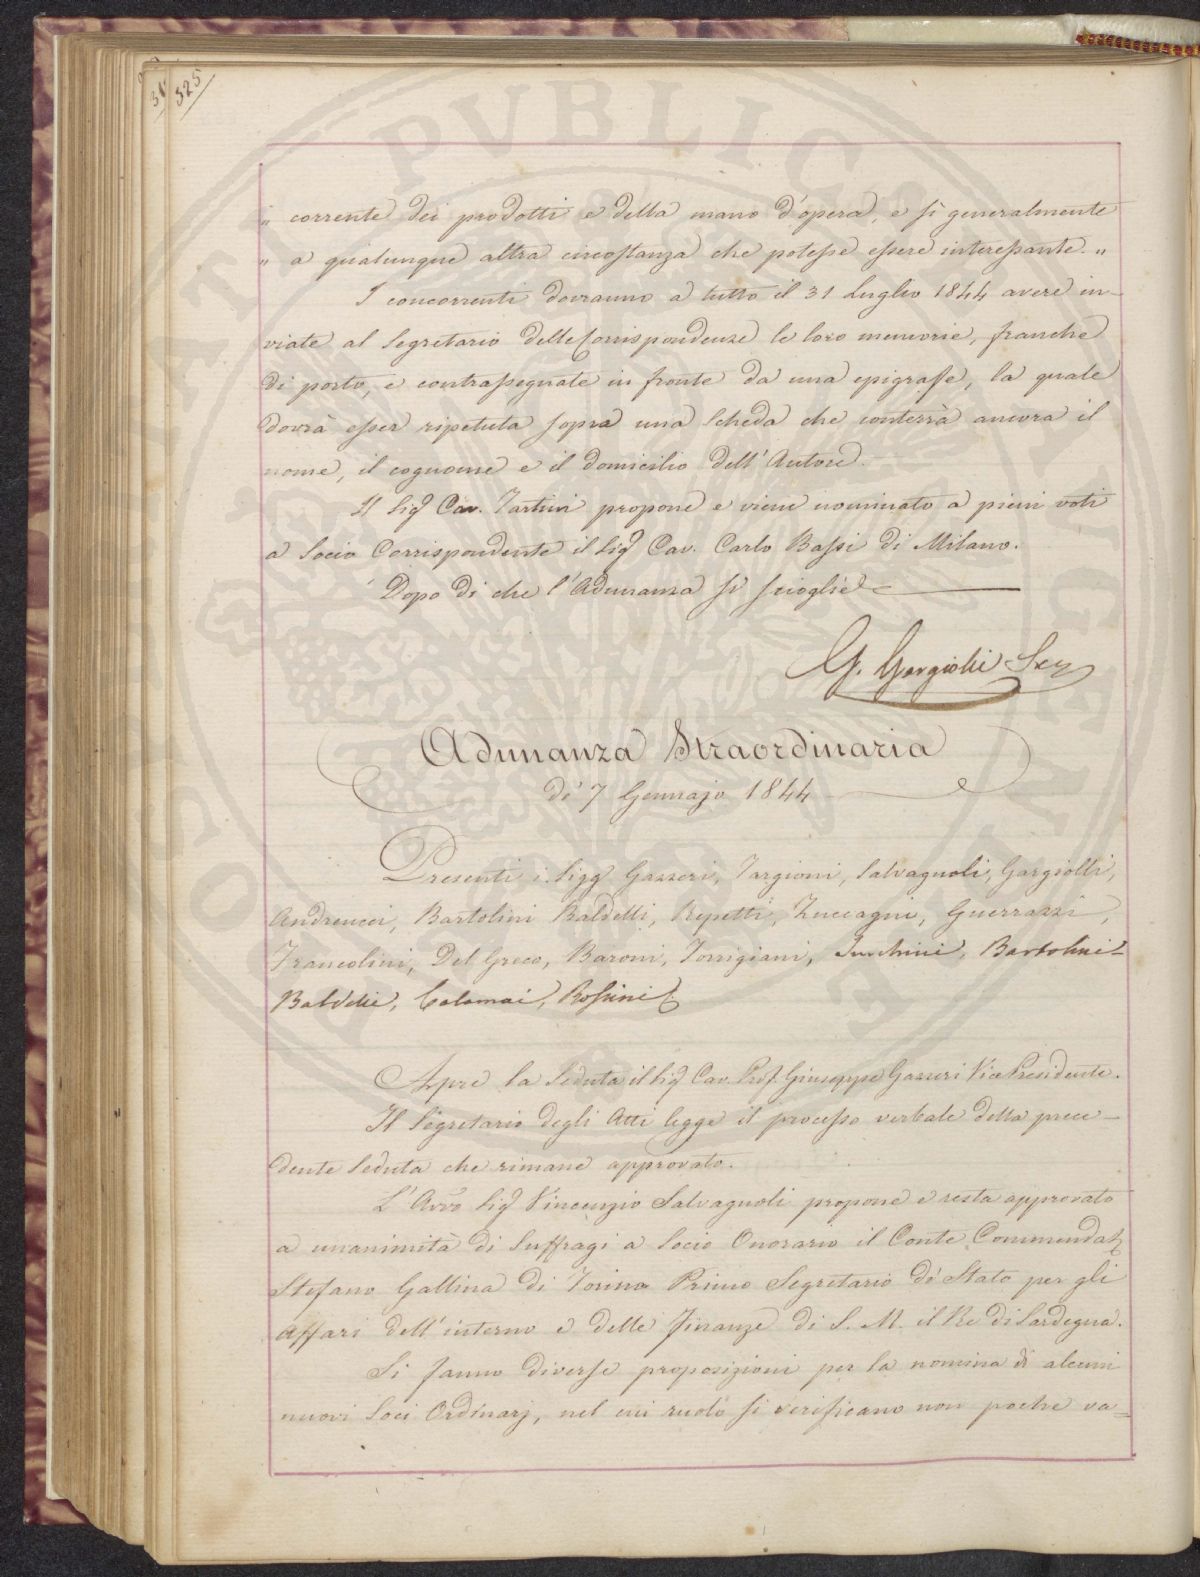 325
„ corrente dei prodotti e della mano d'opera, e sì generalmente
„ a qualunque altra circostanza che potesse essere interessante. „
I concorrenti dovranno a tutto il 31 Luglio 1844 avere in-
viate al Segretario delle Corrispondenze le loro memorie, franche
di porto, e contrassegnate in fronte da una epigrafe, la quale
dovrà esser ripetuta sopra una scheda che conterrà ancora il
nome, il cognome e il domicilio dell'Autore.
Il Sig Cav. Tartini propone e viene nominato a pieni voti
a Socio Corrispondente il Sig Cav. Carlo Bassi di Milano.
Dopo di che l'Adunanza si scioglie
G. Gargiolli Seg
Adunanza Straordinaria
de' 7 Gennajo 1844
Presenti i Sigg Gazzeri, Targioni, Salvagnoli, Gargiolli,
Andreucci, Bartolini Baldelli, Repetti, Zuccagni, Guerrazzi,
Francolini, Del Greco, Baroni, Torrigiani, Bartolini-
Baldelli, Calamai, Rossini
Apre la Seduta il Sig Cav. Prof. Giuseppe Gazzeri Vice Presidente.
Il Segretario degli Atti legge il processo verbale della prece-
dente Seduta che rimane approvato.
L'Avvo Sig Vincenzio Salvagnoli propone e resta approvato
a unanimità di Suffragi a Socio Onorario il Conte Commendat
Stefano Gallina di Torino Primo Segretario di Stato per gli
Affari dell'interno e delle finanze di S. M. il Re di Sardegna.
Si fanno diverse proposizioni per la nomina di alcuni
nuovi Soci Ordinarj, nel cui ruolo si verificano non poche va=